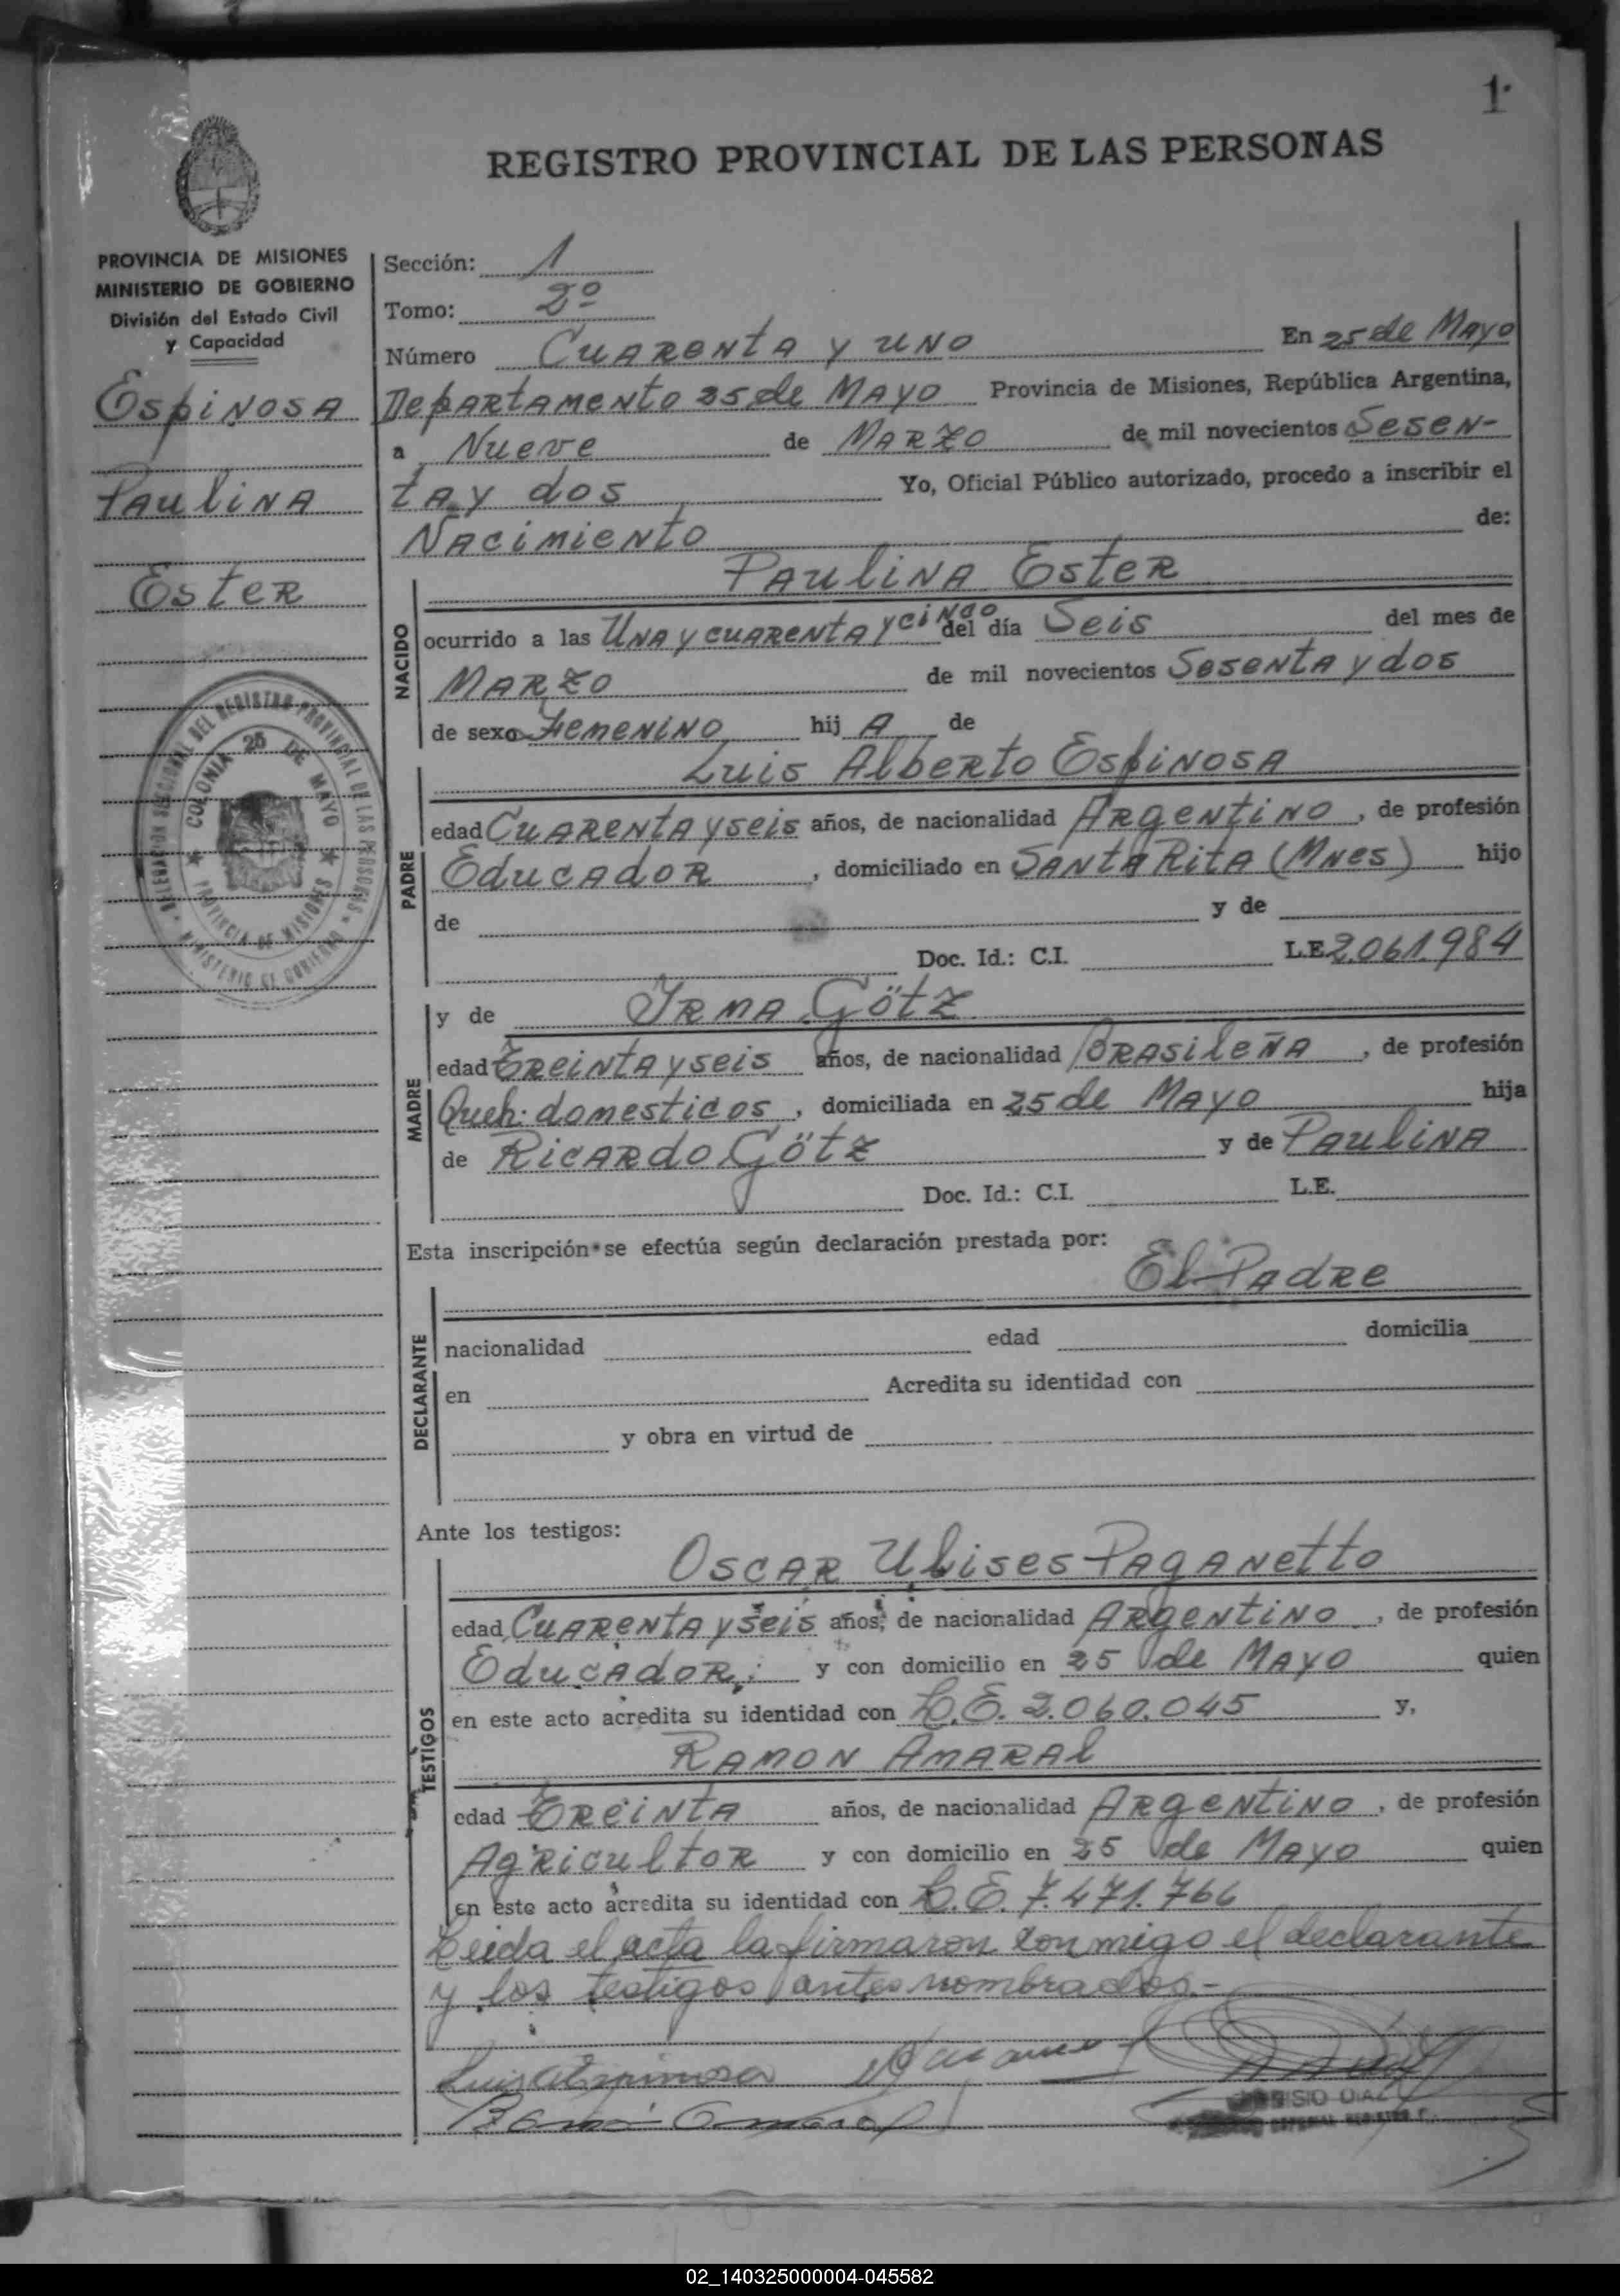 1
REGISTRO PROVINCIAL DE LAS PERSONAS
PROVINCIA DE MISIONES
MINISTERIO DE GOBIERNO
División del Estado Civil
y Capacidad
Espinosa
Paulina
Ester
DELEGACIÓN SECCIONAL DEL REGISTRO PROVINCIAL DE LAS PERSONAS
MINISTERIO DE GOBIERNO
COLONIA 25 DE MAYO
PROVINCIA DE MISIONES
Sección: 1
Tomo: 2º
Número Cuarenta y uno En 25 de Mayo
Departamento 25 de Mayo Provincia de Misiones, República Argentina,
a Nueve de Marzo de mil novecientos Sesen-
ta y dos Yo, Oficial Público autorizado, procedo a inscribir el
Nacimiento de:
Paulina Ester
NACIDO
ocurrido a las Una y cuarenta y cinco del día Seis del mes de
Marzo de mil novecientos Sesenta y dos
de sexo Femenino hij A de
Luis Alberto Espinosa
PADRE
edad Cuarenta y seis años, de nacionalidad Argentino, de profesión
Educador, domiciliado en Santa Rita (Mnes) hijo
de y de
Doc. Id.: C.I. L.E. 2.061.984
y de Irma Götz
MADRE
edad Treinta y seis años, de nacionalidad Brasileña, de profesión
Queh. domesticos, domiciliada en 25 de Mayo hija
de Ricardo Götz y de Paulina
Doc. Id.: C.I. L.E.
Esta inscripción se efectúa según declaración prestada por:
El Padre
DECLARANTE
nacionalidad edad domicilia
en Acredita su identidad con
y obra en virtud de
Ante los testigos:
Oscar Ulises Paganetto
TESTIGOS
edad Cuarenta y seis años, de nacionalidad Argentino, de profesión
Educador; y con domicilio en 25 de Mayo quien
en este acto acredita su identidad con L.E. 2.060.045 y,
Ramon Amaral
edad Treinta años, de nacionalidad Argentino, de profesión
Agricultor y con domicilio en 25 de Mayo quien
en este acto acredita su identidad con L.E. 7.471.766
Leida el acta la firmaron conmigo el declarante
y los testigos antes nombrados.-
Luis A Espinosa
Ramón Amaral
DIAZ
02_140325000004-045582